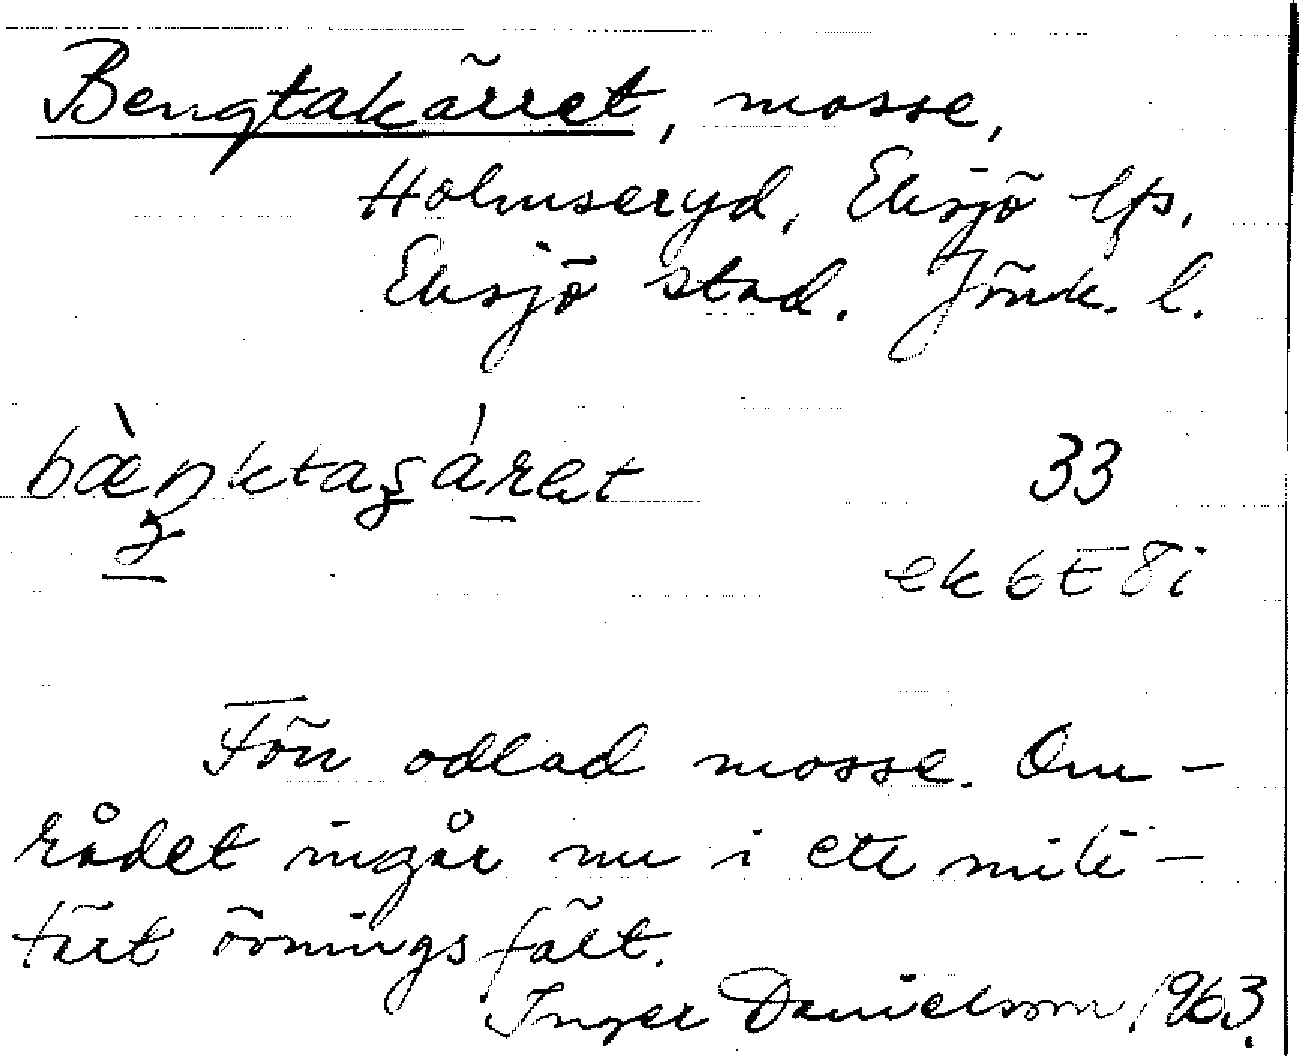 Bengtakärret, mosse,
Holmseryd, Eksjö lfs,
Eksjö stad. Jönk. l.
33
ek 6E 8i
Förr odlad mosse. Om-
rådet ingår nu i ett mili-
tärt övningsfält.
Inger Danielsson 1963.